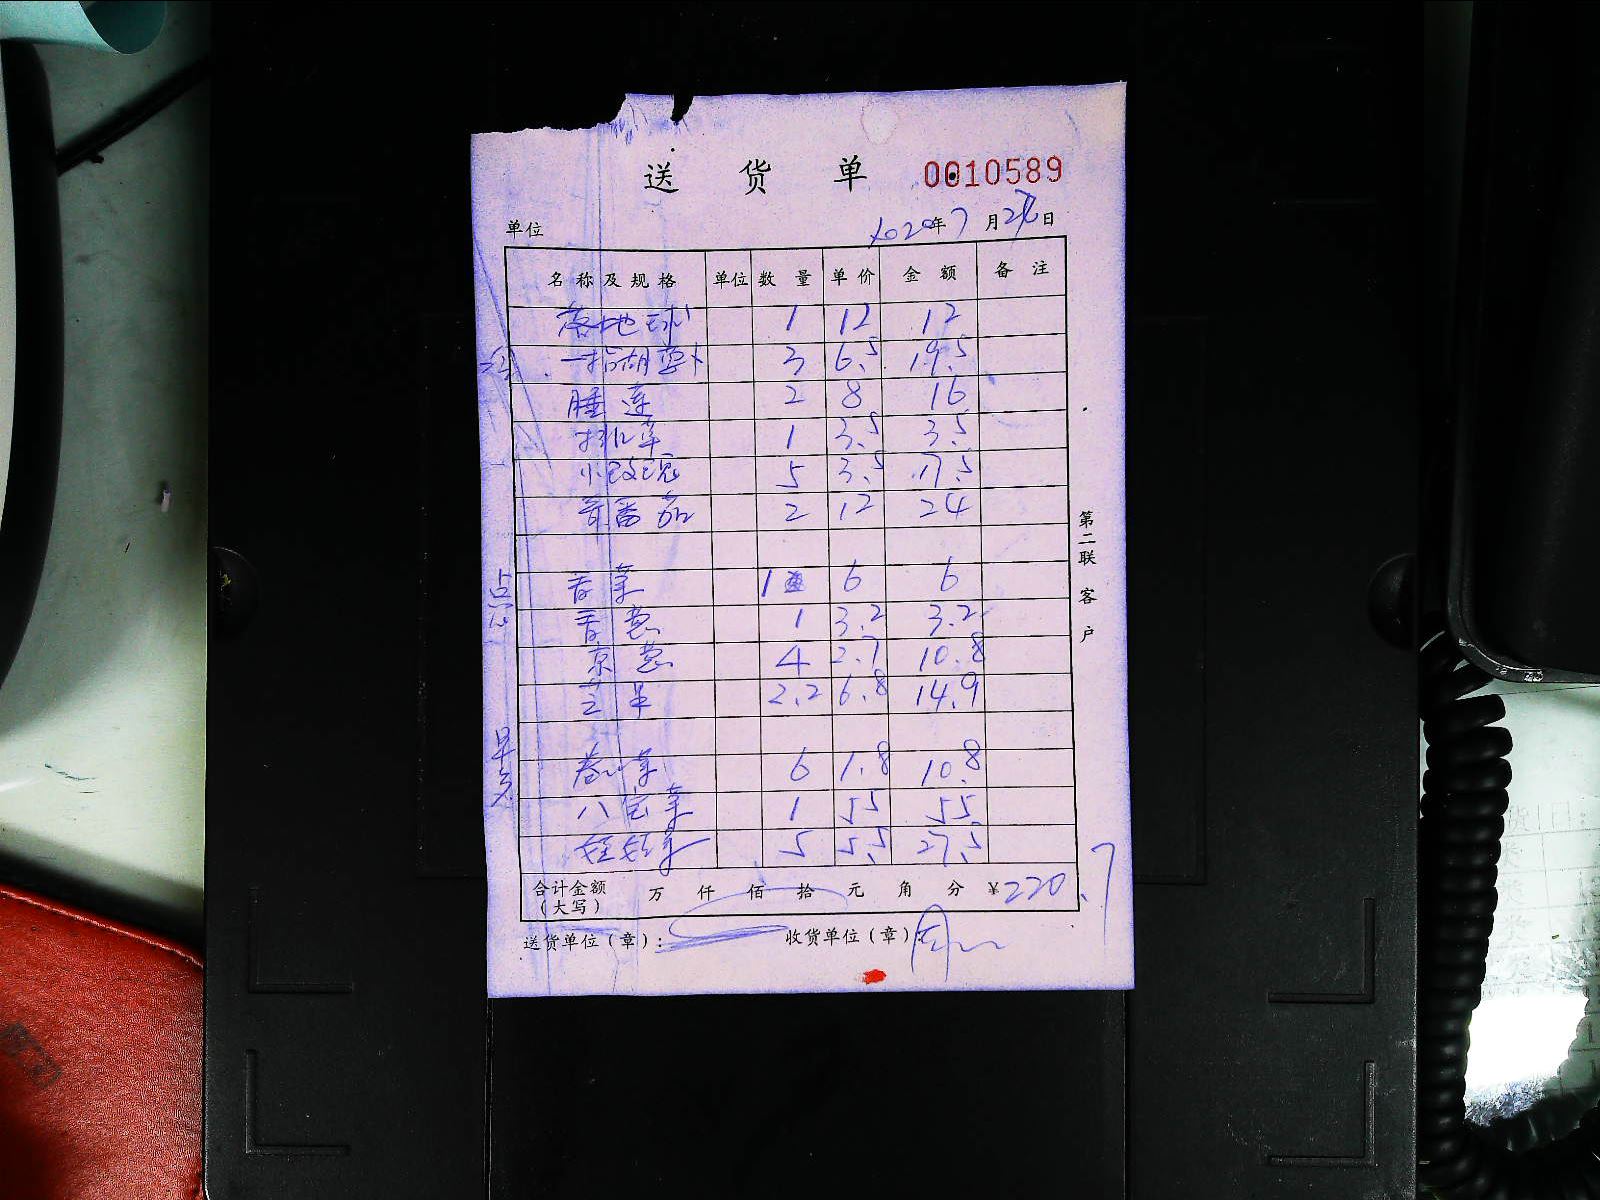 送 货 单 0010589
单位
2020年7月28日
名称及规格 单位 数量 单价 金额 备注
落地球 1 12 12
一指胡萝卜 3 6.5 19.5
睡莲 2 8 16
排草 1 3.5 3.5
小玫瑰 5 3.5 17.5
青番茄 2 12 24
点心
香菜 1 6 6
香葱 1 3.2 3.2
京葱 4 2.7 10.8
2.2 6.8 14.9
早点
卷心菜 6 1.8 10.8
八宝菜 1 55 55
娃娃菜 5 5.5 27.5
合计金额 万 仟 佰 拾 元 角 分 ¥220.7
(大写)
送货单位(章): 收货单位(章)
第二联 客户